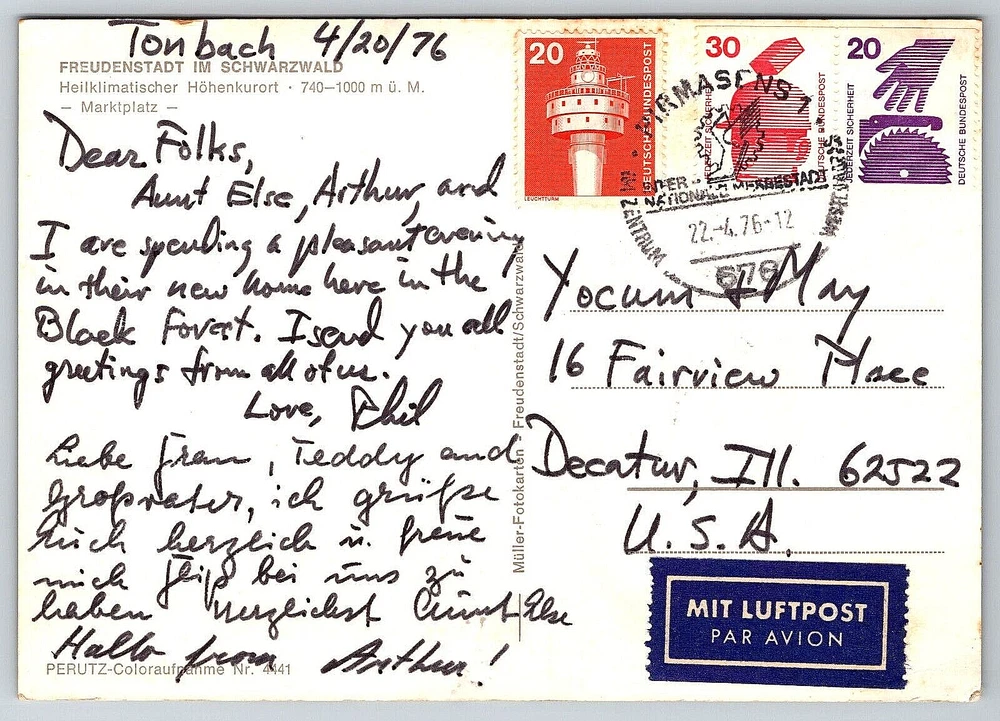 Tonbach 4/20/76
FREUDENSTADT IM SCHWARZWALD
Heilklimatischer Höhenkurort · 740–1000 m ü. M.
– Marktplatz –
Dear Folks,
Aunt Else, Arthur, and
I are spending a pleasant evening
in their new home here in the
Black Forest. I send you all
greetings from all of us.
Love, Phil
Liebe Fran, Teddy and
Großvater, ich grüße
Euch herzlich u. freue
mich Flip bei uns zu
haben Herzlichst Aunt Else
Hallo from Arthur!
PERUTZ-Coloraufnahme Nr. 4441
Müller-Fotokarten - Freudenstadt/Schwarzwald
20
DEUTSCHE BUNDESPOST
LEUCHTTURM
30
JEDERZEIT SICHERHEIT
DEUTSCHE BUNDESPOST
20
JEDERZEIT SICHERHEIT
DEUTSCHE BUNDESPOST
PIRMASENS 1
INTER-
NATIONALE MESSESTADT
IM ZENTRUM
22.-4.76-12
Yocum + May
16 Fairview Place
Decatur, Ill. 62522
U.S.A.
MIT LUFTPOST
PAR AVION